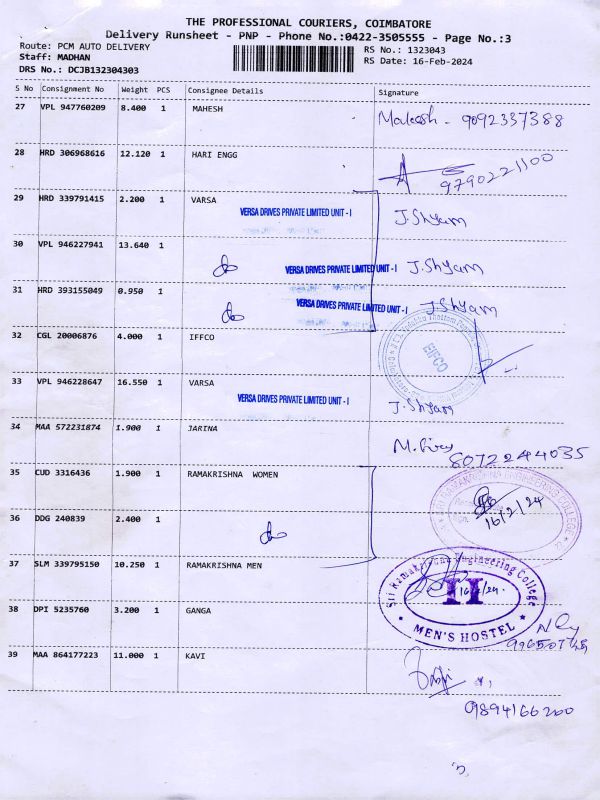 THE PROFESSIONAL COURIERS, COIMBATORE
Delivery Runsheet - PNP - Phone No.:0422-3505555 - Page No.:3
Route: PCM AUTO DELIVERY RS No.: 1323043
Staff: MADHAN RS Date: 16-Feb-2024
DRS No.: DCJB132304303
S No Consignment No Weight PCS Consignee Details Signature
27 VPL 947760209 8.400 1 MAHESH Mahesh - 9092337388
28 HRD 306968616 12.120 1 HARI ENGG 9790221100
29 HRD 339791415 2.200 1 VARSA
VERSA DRIVES PRIVATE LIMITED UNIT - I J.Shyam
30 VPL 946227941 13.640 1
VERSA DRIVES PRIVATE LIMITED UNIT - I J.Shyam
31 HRD 393155049 0.950 1
VERSA DRIVES PRIVATE LIMITED UNIT - I J.Shyam
32 CGL 20006876 4.000 1 IFFCO
EIFCO
33 VPL 946228647 16.550 1 VARSA
VERSA DRIVES PRIVATE LIMITED UNIT - I J.Shyam
34 MAA 572231874 1.900 1 JARINA
8072244035
35 CUD 3316436 1.900 1 RAMAKRISHNA WOMEN
RAMAKRISHNA ENGINEERING COLLEGE
16/2/24
36 DDG 240839 2.400 1
37 SLM 339795150 10.250 1 RAMAKRISHNA MEN
Sri Ramakrishna Engineering College
II
MEN'S HOSTEL
38 DPI 5235760 3.200 1 GANGA
39 MAA 864177223 11.000 1 KAVI
9894166200